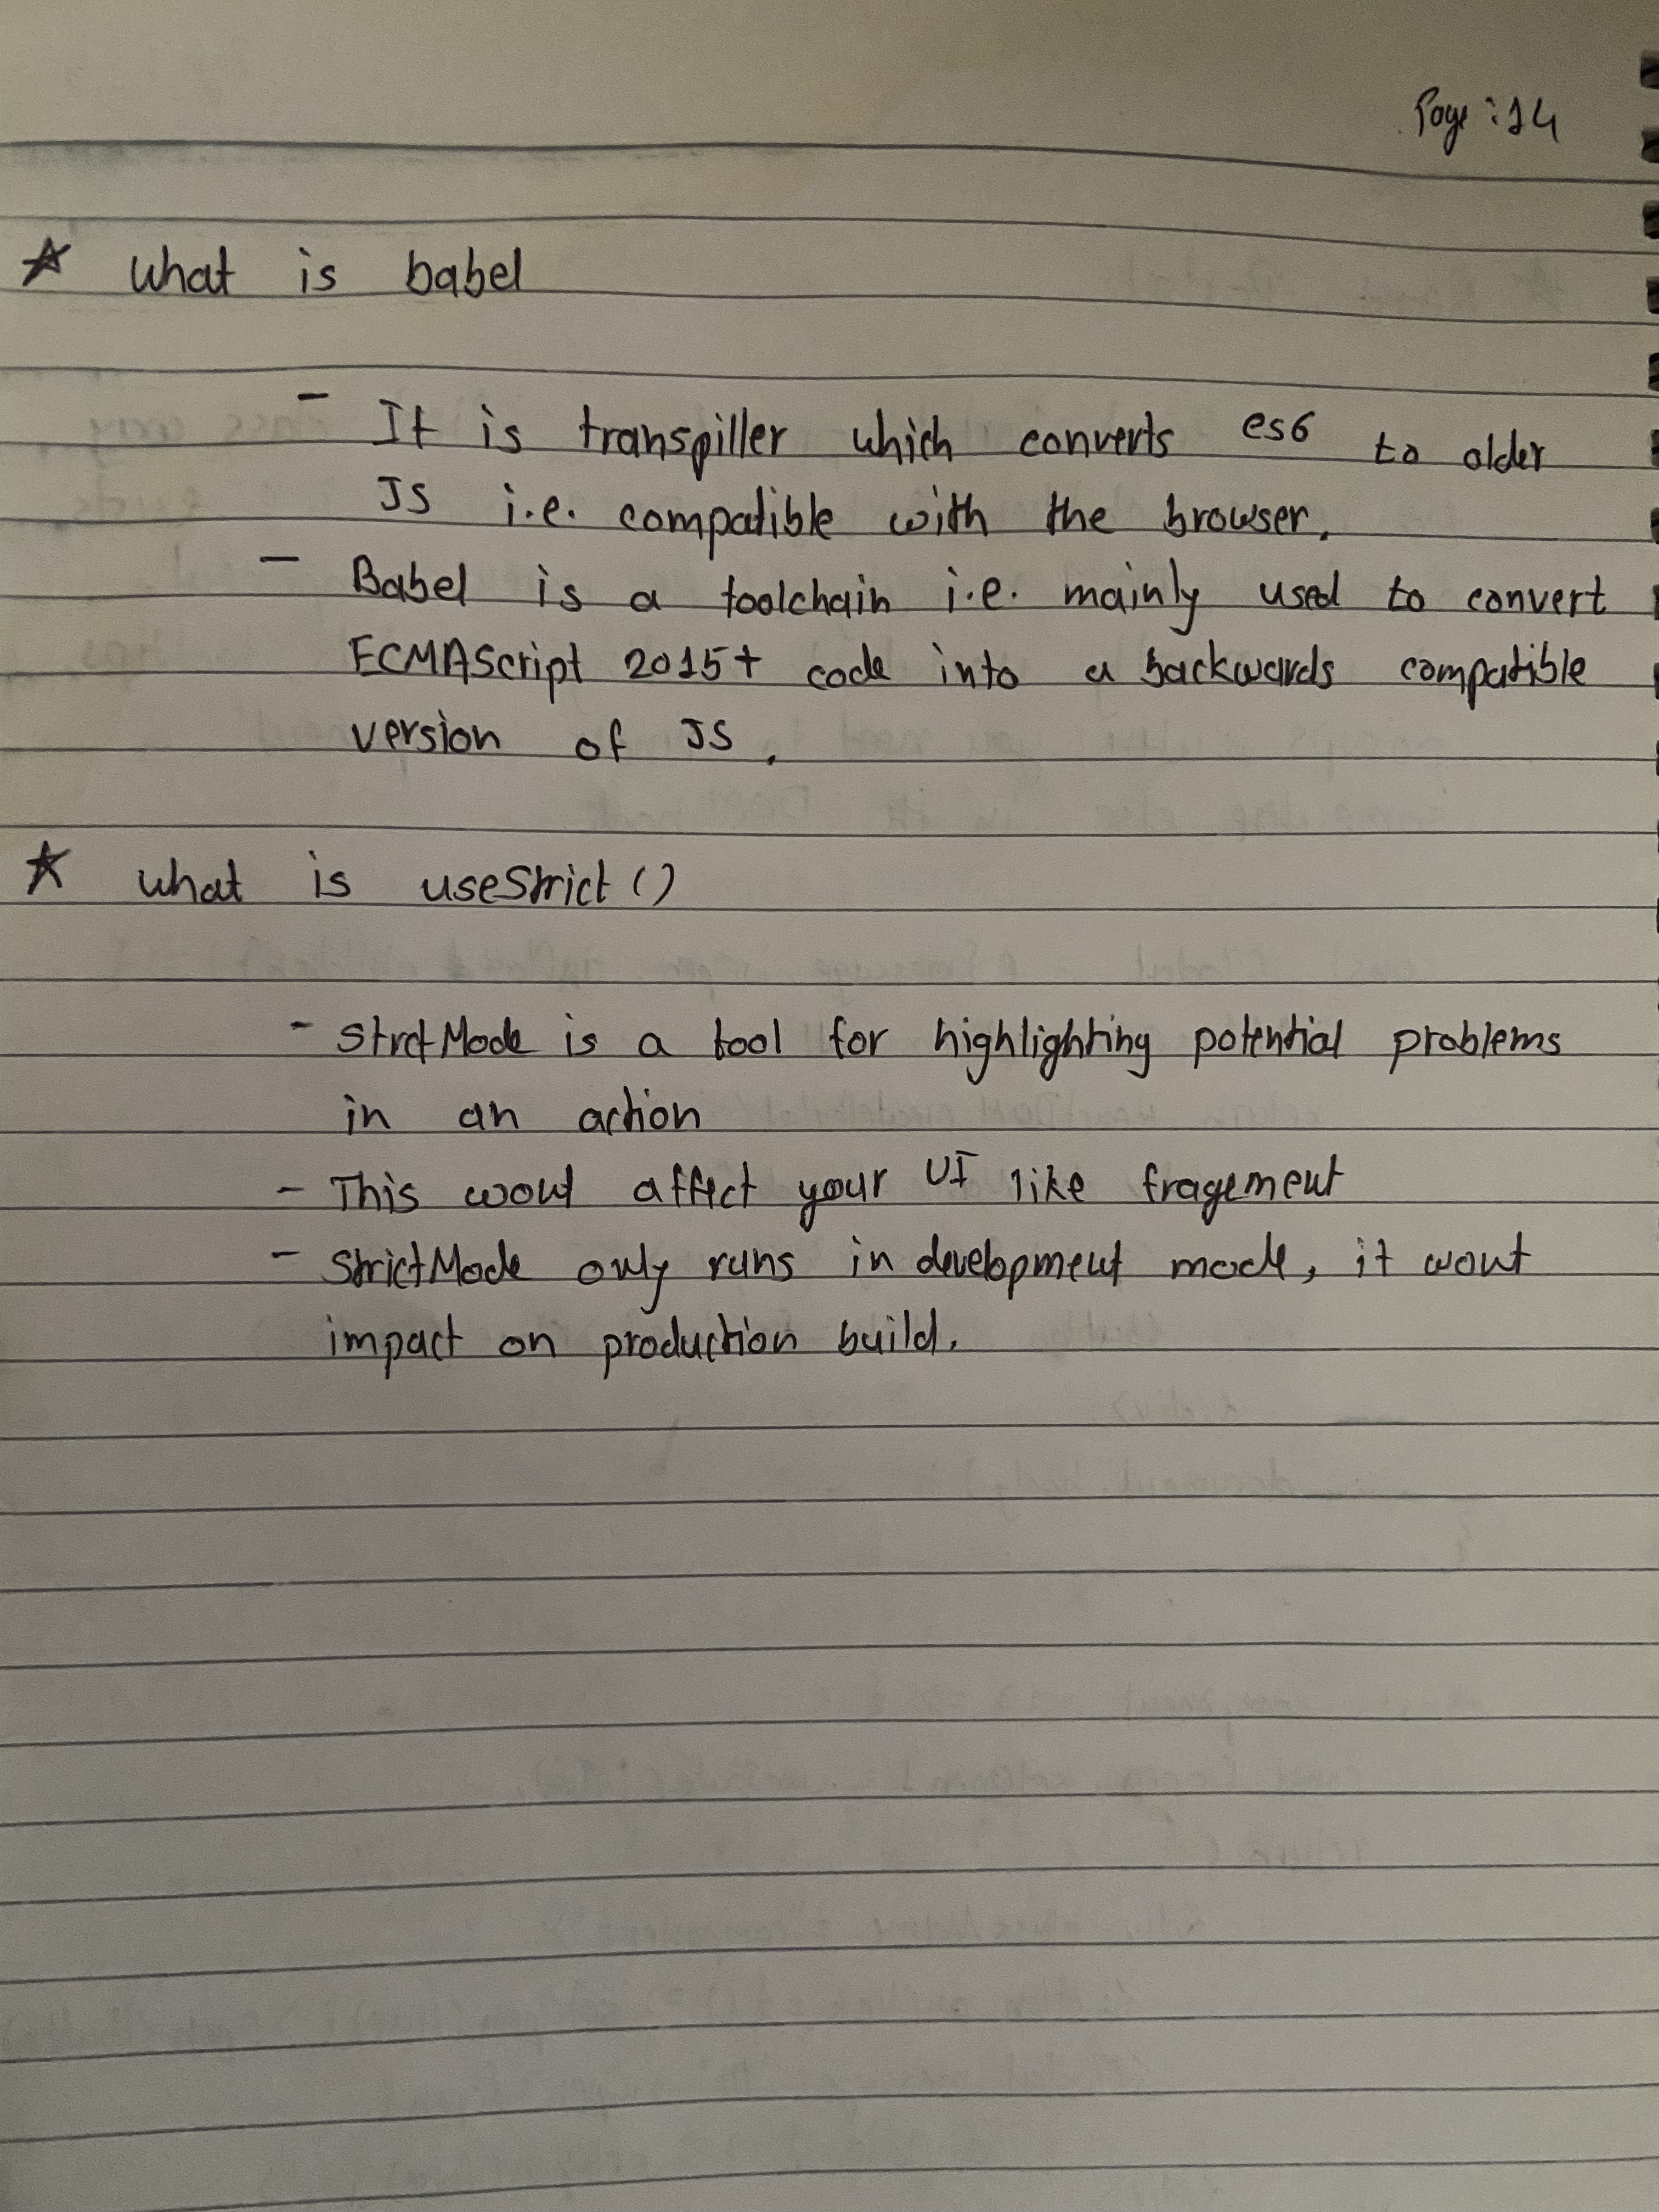 Page : 14
★ what is babel
- It is transpiller which converts es6 to older
JS i.e. compatible with the browser.
- Babel is a toolchain i.e. mainly used to convert
ECMAScript 2015+ code into a backwards compatible
version of JS.
★ what is useStrict ()
- StrctMode is a tool for highlighting potential problems
in an action
- This wont affect your UI like fragement
- StrictMode only runs in development mode, it wont
impact on production build.